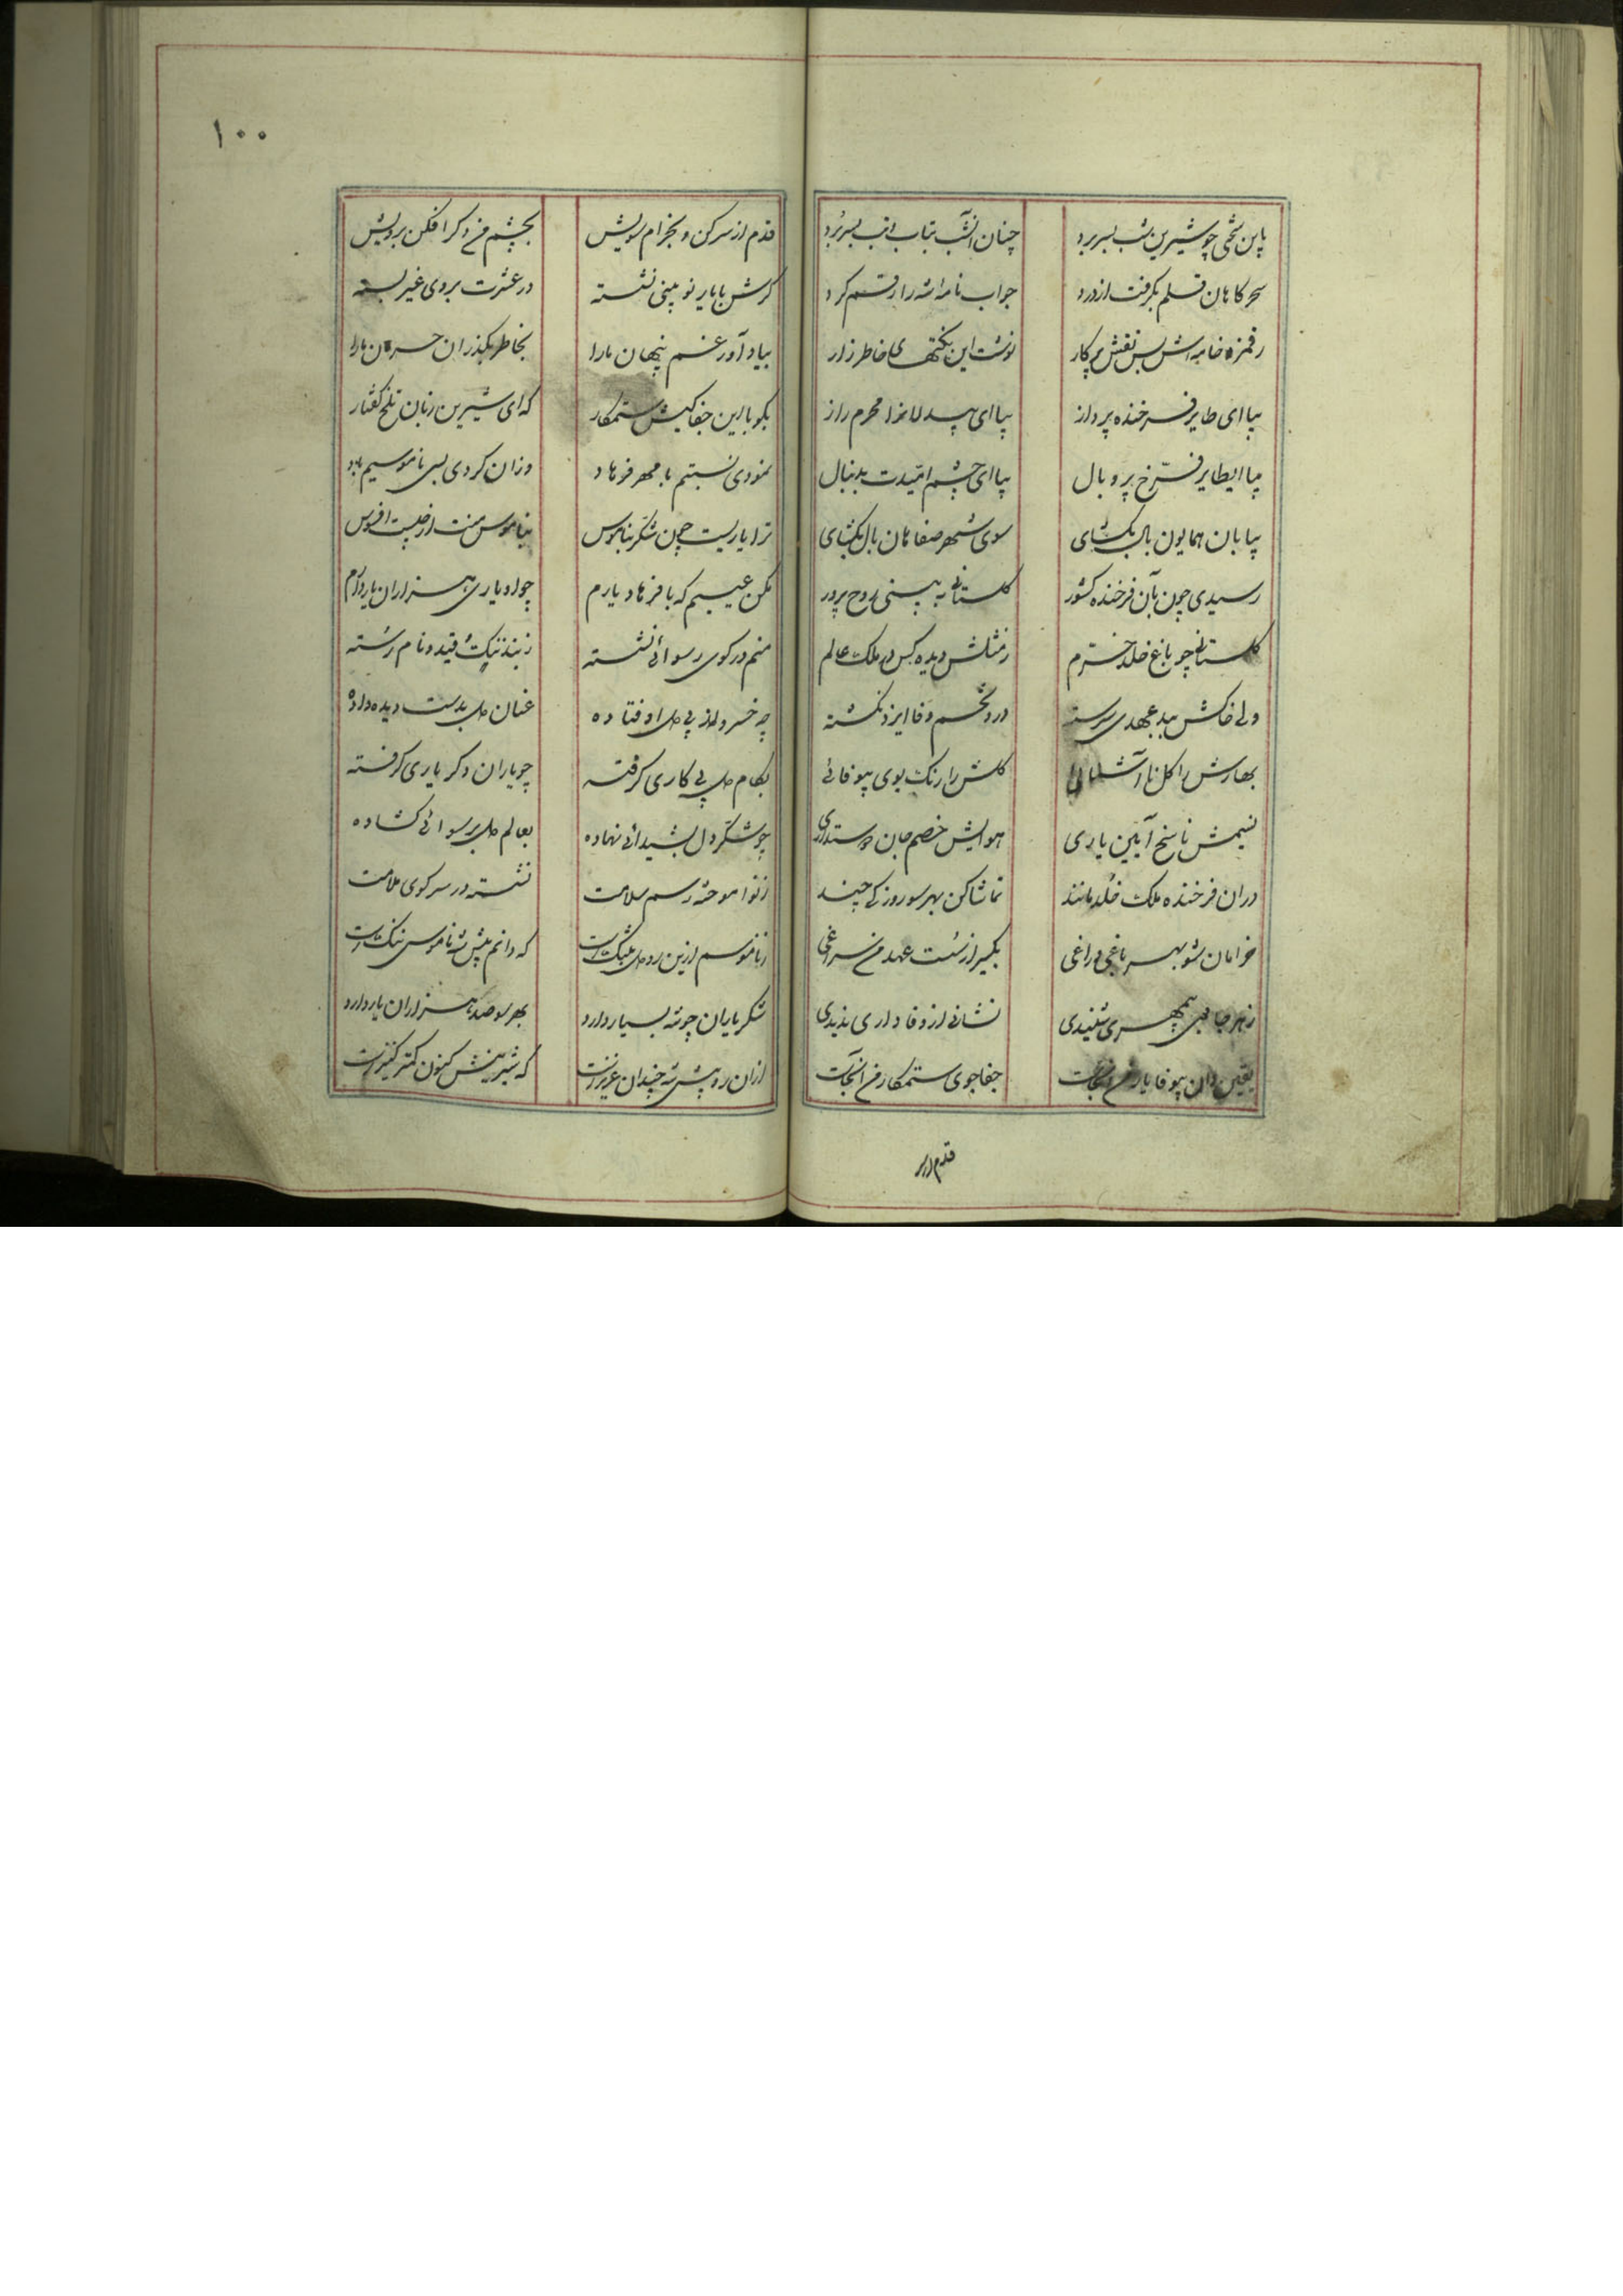 باین تلخی چو شیرین شب بسر برد
چنان آتشب بتاب و تب بسر برد
سحرکاهان قلم بگرفت از درد
جواب نامه شه را رقم کرد
رقمزد خامه اش بس نقش پرکار
نوشت این نکتهای خاطر زار
بیا ای طایر فرخنده پرواز
بیا ای بیدلانرا محرم راز
بیا ایطایر فرّخ پر و بال
بیا ای چشم امّیدت بدنبال
بیا بان همایون بال بکشای
سوی شهر صفاهان بال بکشای
رسیدی چون بآن فرخنده کشور
کلستانی به بینی روح پرور
کلستانی چو باغ خلد خرم
ز مثلش دیده کس در ملک عالم
ولی خاکش ببد عهدی سرشته
درو تخم وفا ایزد نکشته
بهارش را کل ناآشنائی
کلش را رنک بوی بیوفائی
نسیمش ناسخ آیین یاری
هوایش خصم جان دوستداری
دران فرخنده ملک خلد مانند
تماشا کن بهر سو روزکی چند
خرامان شو بهر باغی و راغی
بگیر از سست عهد من سراغی
ز هر جا بی مهری شنیدی
نشانی از وفاداری ندیدی
یقین دان بیوفا یار من آنجاست
جفا جوی ستمکار من آنجاست
قدم از سر
۱۰۰
قدم از سر کن و بخرام سویش
بچشم من دکر افکن برویش
کرش با یار نو بینی نشسته
در عشرت بروی غیر بسته
بیاد آور غم پنهان ما را
بخاطر بگذران حرمان ما را
بکو با این جفا کیش ستمکار
که ای شیرین زبان تلخ کفتار
نمودی نسبتم با مهر فرهاد
وزان کردی بسی ناموسیم یاد
ترا یاریست چون شکر بناموس
بناموس منت از چیست افسوس
مکن عیبم که با فرهاد یارم
چو او یاری هزاران یار دارم
منم در کوی رسوائی نشسته
ز بند ننک و قید نام رسته
چه خسرو از پی دل اوفتاده
عنان دل بدست دیده داده
بکام دل پی کاری کرفته
چو یاران دکر یاری کرفته
چو شکر دل بشیدائی نهاده
بعالم دل برسوائی کشاده
ز تو آموخته رسم سلامت
نشسته در سر کوی ملامت
ز ناموسم ازین رو دل بتنک است
که دانم پیش شه ناموس ننک است
شکر یاران چو شه بسیار دارد
بهر سو صد هزاران یار دارد
ازان رو پیش شه چندان عزیز است
که شیرینش کنون کمتر کنیز است